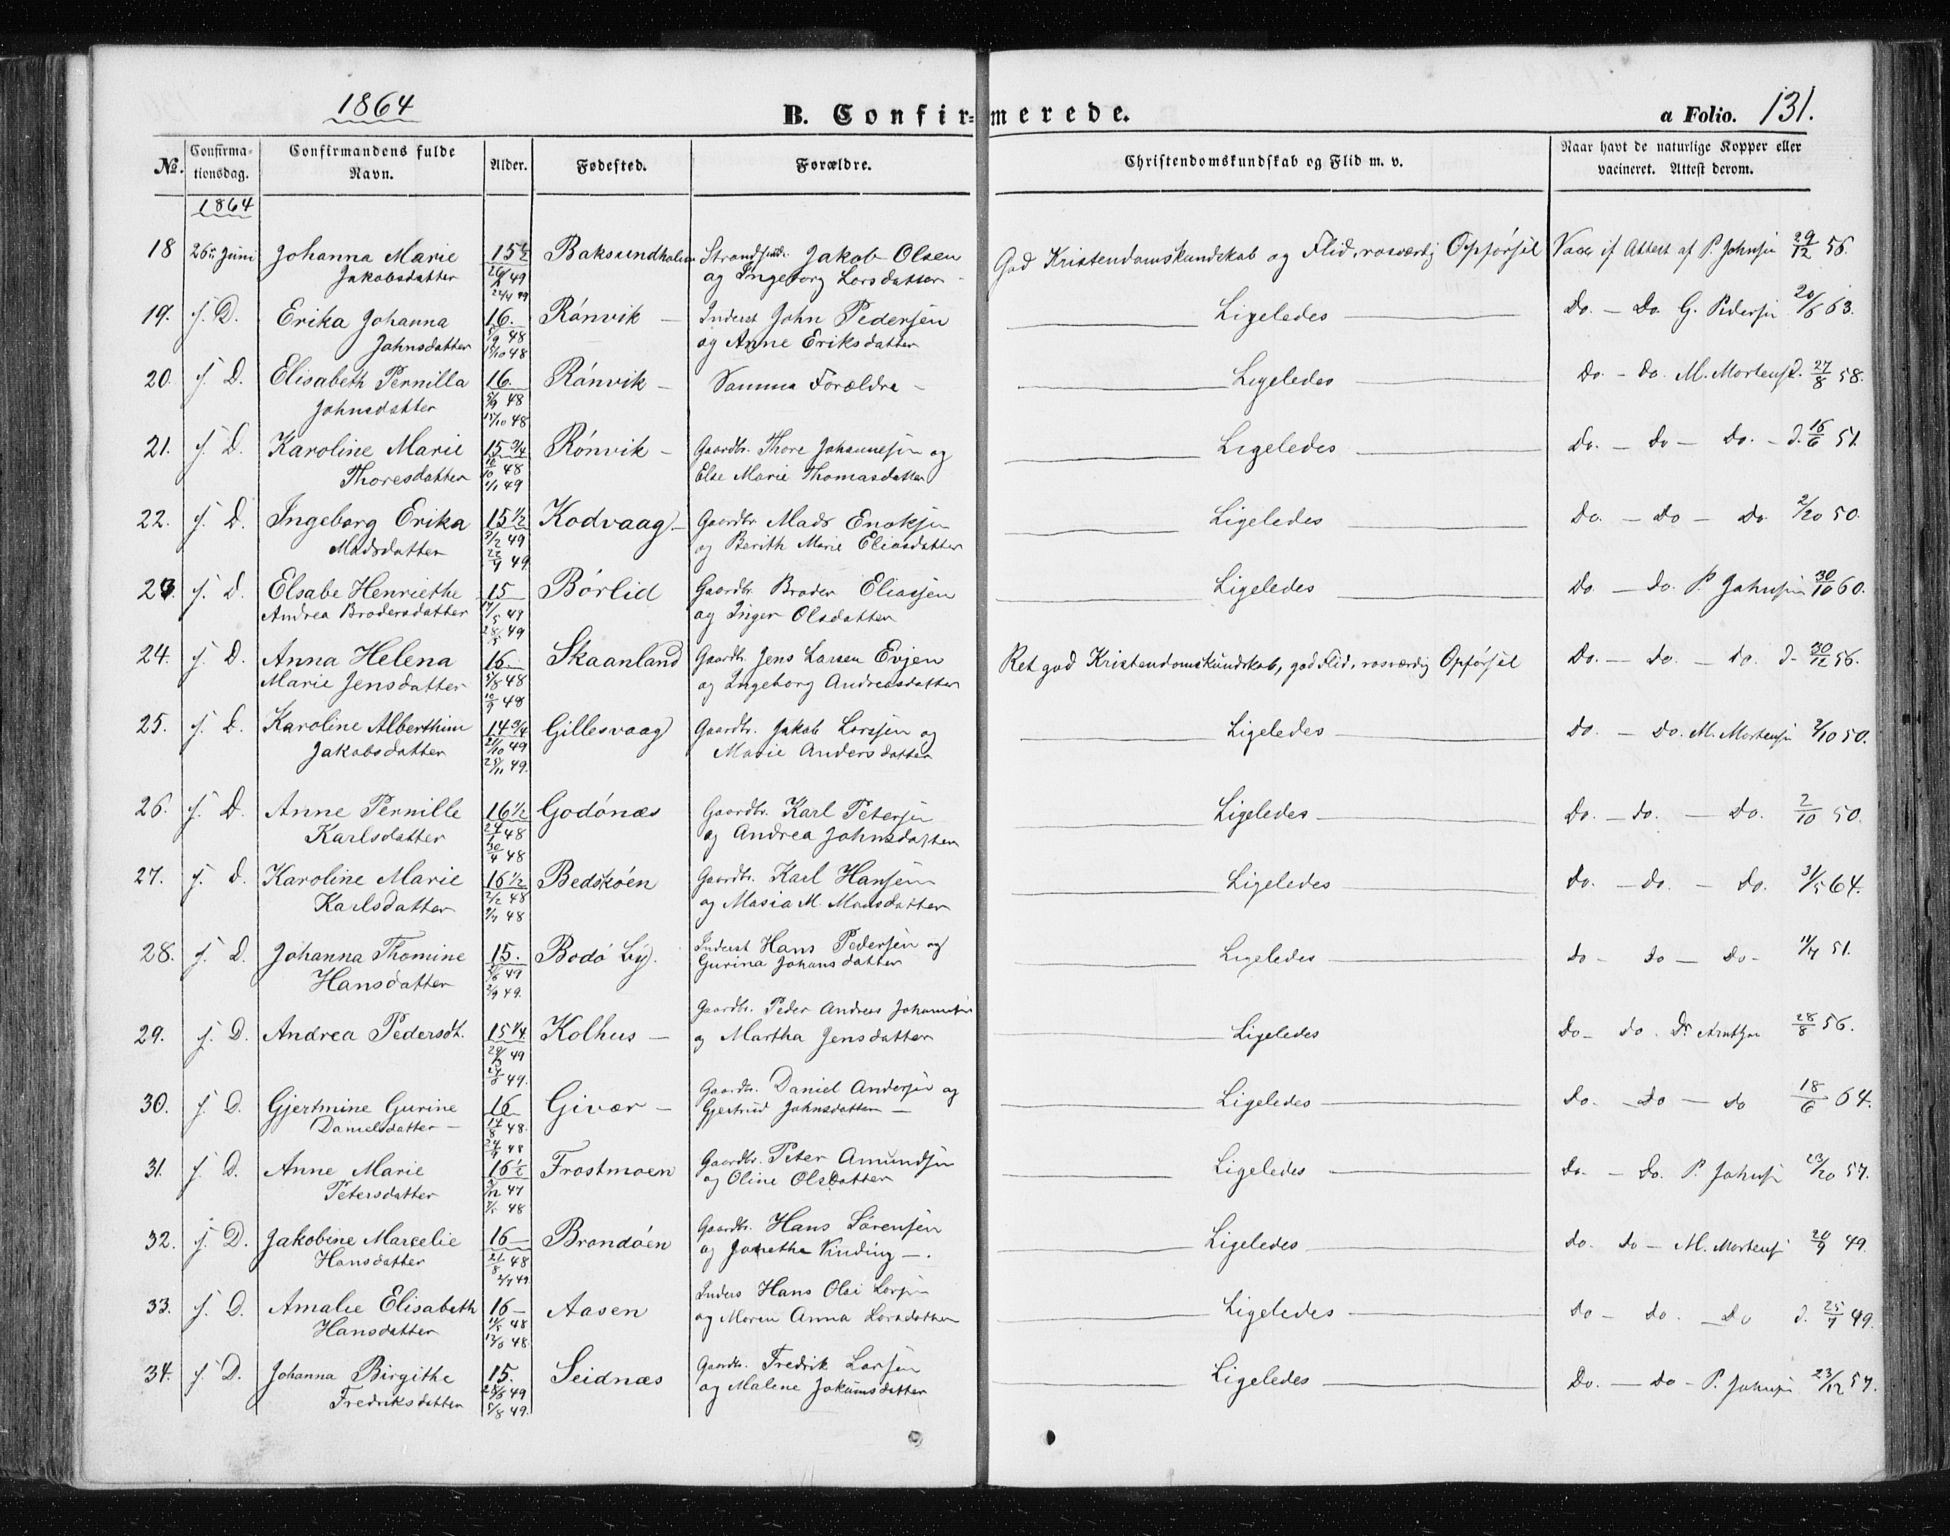 1864
B. Confirmerede.
a Folio. 131.
No.
Confirmationsdag.
Confirmandens fulde Navn.
Alder.
Fødested.
Forældre.
Christendomskundskab og Flid m. v.
Naar havt de naturlige Kopper eller vacineret. Attest derom.
1864
18 26 Juni Johanna Marie 15½ Baksundholmen Jakob Olsen God Kristendomskundskab og Flid, rosværdig Opførsel Attest af P. Johnsen 29/12 56.
Jakobsdatter 49 og Ingeborg Larsdatter
19. f. D. Erika Johanna 16. Rønvik — Inderst John Pedersen Ligeledes Do. — Do G. Pedersen 20/6 63.
Johnsdatter 5/9 48 og Anne Eriksdatter
15/10 48
20. f. D. Elisabeth Pernilla 16. Rønvik — Samma Forældre — Ligeledes Do — do. M. Mortens 27/8 58.
Johnsdatter 5/9 48
15/10 48
21. f. D. Karoline Marie 15 3/4 Rønvik — Gaardbr. Thore Johannesen og Ligeledes Do. — Do — Do. — d. 16/6 51.
Thoresdatter 48 Else Marie Thomasdatter
1/1 49
22. f. D. Ingeborg Erika 15½ Kodvaag — Gaardbr Mads Enoksen Ligeledes Do. — Do — Do 2/10 50.
Madsdatter 49 og Berith Marie Eliasdatter
49
23. f. D. Elsabe Henriethe 15 Børlid Gaardbr. Broder Eliasen Ligeledes Do. — Do. P. Johnsen 30/10 60.
Andrea Brodersdatter 49 og Inger Olsdatter
28/5 49
24. f. D. Anna Helena 16 — Skaanland Gaardbr. Jens Larsen Evjen Ret god Kristendomskundskab, god Flid, rosværdig Opførsel Do. — Do. — Do. d. 30/12 56.
Marie Jensdatter 5/8 48 og Ingeborg Andreasdatter
48
25. f. D. Karoline Alberthine 14 3/4 Gillesvaag Gaardbr. Jakob Larsen og Ligeledes Do — Do. M. Mortensen 2/10 50.
Jakobsdatter 21/10 49 Marie Andersdatter
25/11 49.
26. f. D. Anne Pernille 16½ Godønæs Gaardbr. Karl Petersen Ligeledes Do. — do. — Do. 2/10 50.
Karlsdatter 48 og Andrea Johnsdatter
30/4 48
27. f. D. Karoline Marie 16½ Bedskøen Gaardbr. Karl Hansen Ligeledes Do. — Do. — Do. 31/5 64.
Karlsdatter 2/2 48 og Masia M. Monsdatter
48
28. f. D. Johanna Thomine 15. Bodø by. Inderst Hans Pedersen og Ligeledes Do — Do — Do — 11/7 51.
Hansdatter 49 Gurina Johansdatter
2/9 49.
Gaardbr. Peder Andreas Johannesen
29. f. D. Andrea Pedersdt. 15 1/4 Kolhus — og Martha Jensdatter Ligeledes Do — do. Dr 28/8 56.
49
49.
30. f. D. Gjertmine Gurine 16 Givær — Gaardbr. Daniel Andersen og Ligeledes Do. — Do — Do 18/6 64.
Danielsdatter — 17/8 48. Gjertrud Johnsdatter —
48
31. f. D. Anne Marie 16½ Frostmoen Gaardbr. Peter Amundsen Ligeledes Do — Do. P. Johnsen 23/10 57.
Petersdatter 47 og Oline Olsdatter
48
32. f. D. Jakobine Marcelie 16 — Brandøen Gaardbr. Hans Sørensen Ligeledes Do. Do — M. Mortensen 20/9 49.
Hansdatter 21/8 48 og Janetha Vinding —.
49
33. f. D. Amalie Elisabeth 16 — Aasen Inders Hans Olai Larsen Ligeledes Do — Do. — Do d. 25/7 49.
Hansdatter 48 og Maren Anna Larsdatter
48
34. f. D. Johanna Birgithe 15. Seidnæs Gaardbr. Fredrik Larsen Ligeledes Do. — Do — P. Johnsen 23/12 57.
Fredriksdatter 49 og Malene Jokumsdatter
5/8 49.